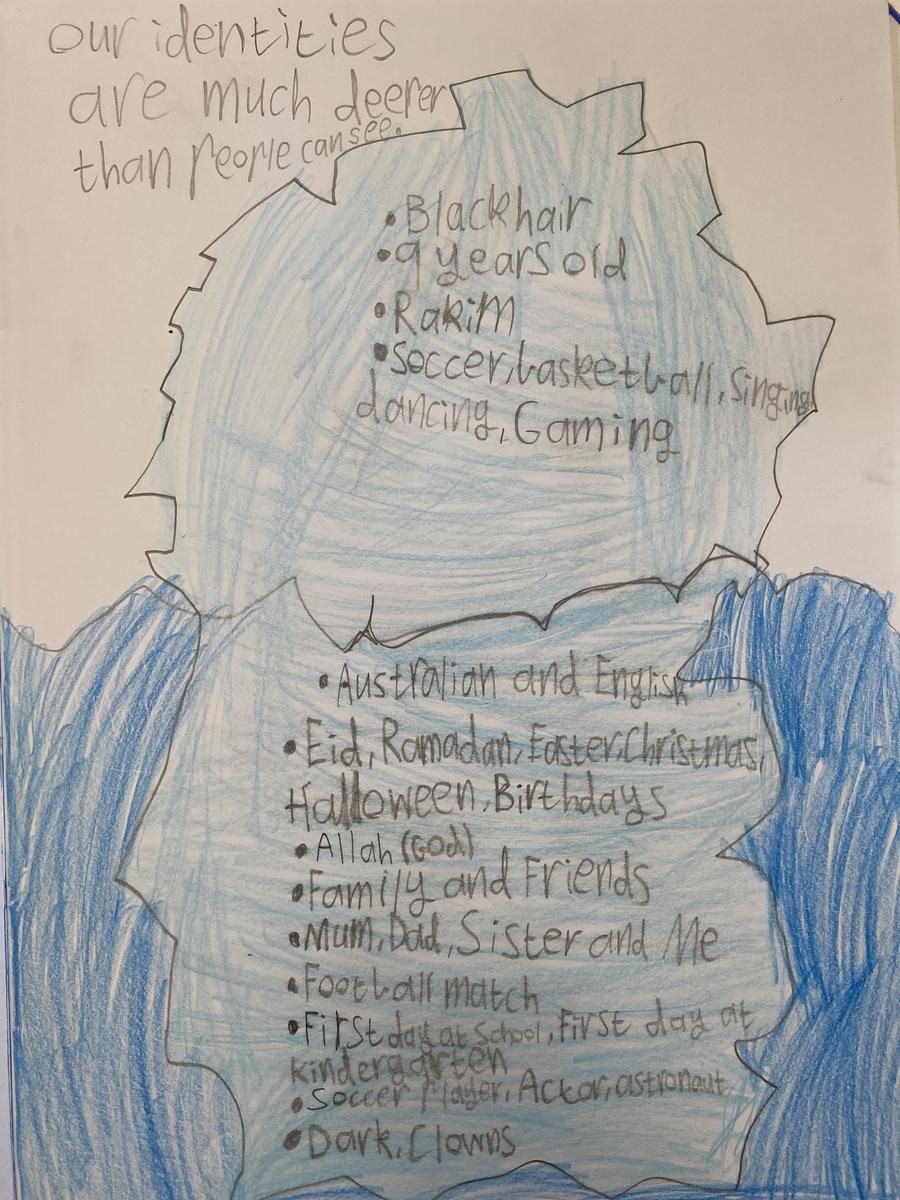 our identities
are much deerer
than people can see.
• Black hair
• 9 years old
• Rakim
• Soccer, basketball, Singing
dancing, Gaming
• Australian and English
• Eid, Ramadan, Easter, Christmas,
Halloween, Birthdays
• Allah (God)
• Family and Friends
• Mum, Dad, Sister and Me
• Football match
• First day at School, First day at
kindergarten
• Soccer Player, Actor, astronaut
• Dark, Clowns